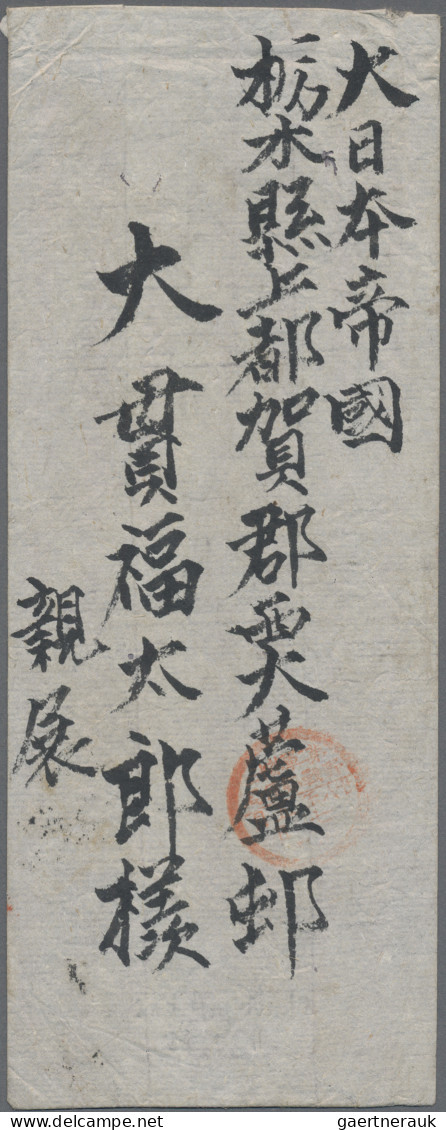 大日本帝國
栃木縣上都賀郡西大蘆邨
大貫福太郎様
親展
www.delcampe.net
gaertnerauk